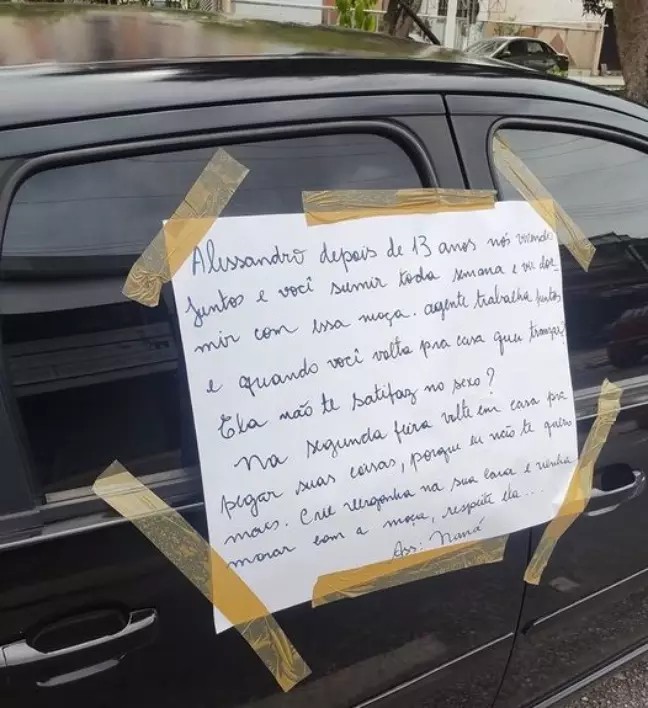 Alessandro depois de 13 anos nós vivendo
juntos e você sumir toda semana e vir dor_
mir com essa moça. agente trabalha juntos
e quando você volta pra casa quer transar?
Ela não te satifaz no sexo?
Na segunda feira volte em casa pra
pegar suas coisas, porque eu não te quero
mais. Crie vergonha na sua cara e venha
morar com a moça, respeite ela...
Ass: Naná